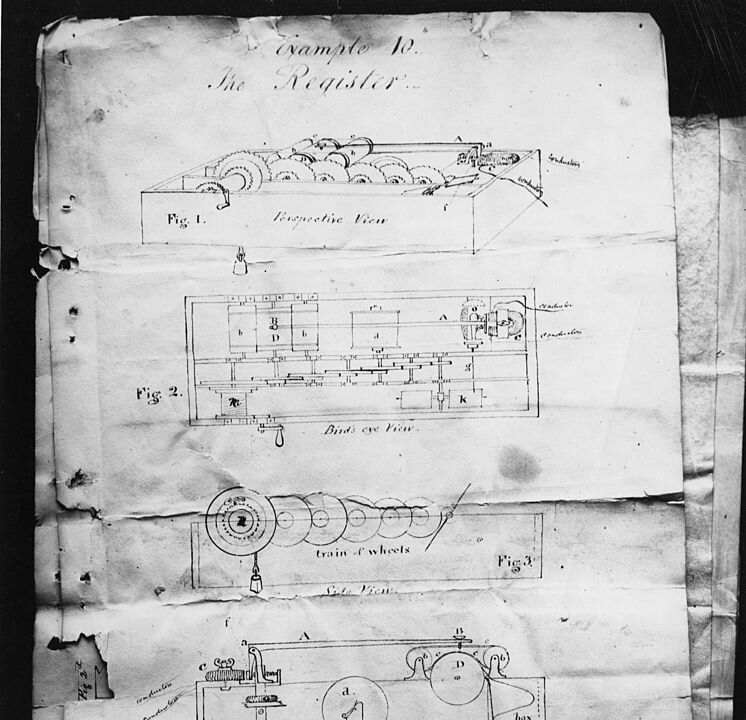 Example 10.
The Register.
c c A a
b
conductor
conductor
f
Fig. 1. Perspective View
B
b D b d A o e
conductor
conductor
g
m k
Fig. 2.
Bird's eye View.
train of wheels
Fig 3.
Side View.
f
a A B
c c
C b D b
a
conductor
conductor
d
box
Fig 2d